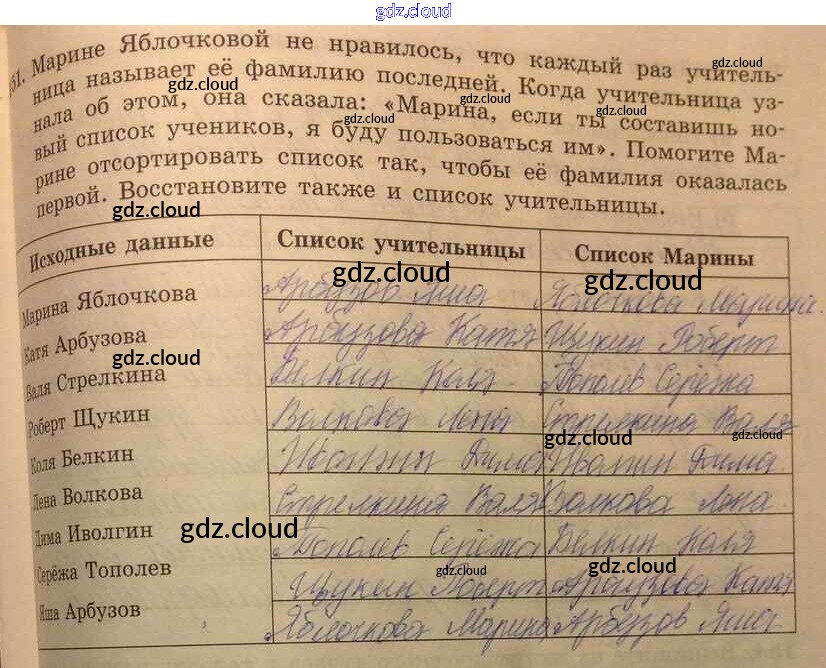 gdz.cloud
51. Марине Яблочковой не нравилось, что каждый раз учитель-
gdz.cloud
ница называет её фамилию последней. Когда учительница уз-
gdz.cloud
gdz.cloud
gdz.cloud
нала об этом, она сказала: «Марина, если ты составишь но-
gdz.cloud
вый список учеников, я буду пользоваться им». Помогите Ма-
рине отсортировать список так, чтобы её фамилия оказалась
первой. Восстановите также и список учительницы.
gdz.cloud
Исходные данные Список учительницы Список Марины
gdz.cloud gdz.cloud
Марина Яблочкова Арбузов Яша Яблочкова Марина.
Катя Арбузова Арбузова Катя Щукин Роберт
gdz.cloud
Валя Стрелкина Белкин Коля Тополев Серёжа
Роберт Щукин Волкова Лена Стрелкина Валя
gdz.cloud gdz.cloud
Коля Белкин Дима Дима.
Лена Волкова Стрелкина Валя Волкова Лена.
gdz.cloud
Дима Иволгин Тополев Серёжа Белкин Коля
gdz.cloud gdz.cloud
Серёжа Тополев Щукин Роберт Арбузова Катя
Яша Арбузов Яблочкова Марина Арбузов Яша.